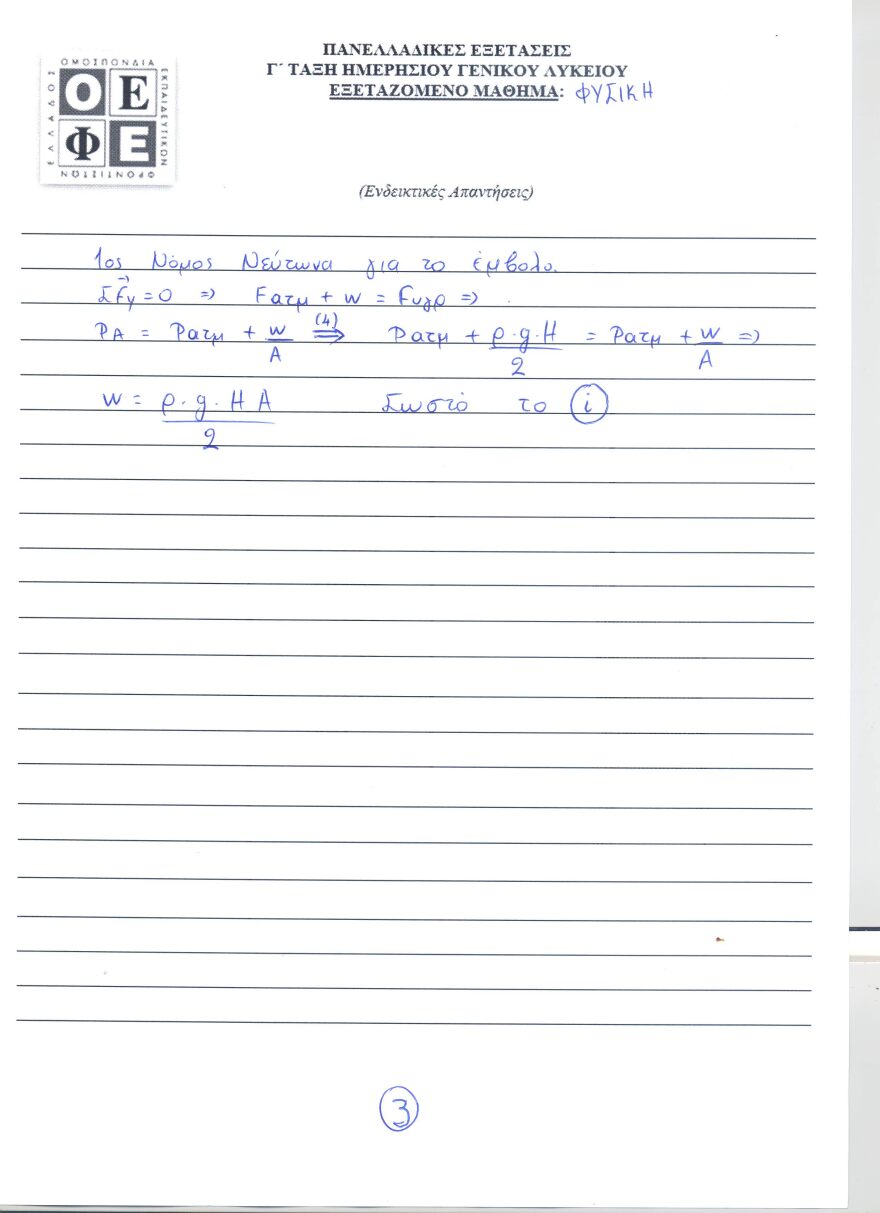 ΟΜΟΣΠΟΝΔΙΑ
ΕΚΠΑΙΔΕΥΤΙΚΩΝ
ΦΡΟΝΤΙΣΤΩΝ
ΕΛΛΑΔΟΣ
Ο Ε
Φ Ε
ΠΑΝΕΛΛΑΔΙΚΕΣ ΕΞΕΤΑΣΕΙΣ
Γ΄ ΤΑΞΗ ΗΜΕΡΗΣΙΟΥ ΓΕΝΙΚΟΥ ΛΥΚΕΙΟΥ
ΕΞΕΤΑΖΟΜΕΝΟ ΜΑΘΗΜΑ: ΦΥΣΙΚΗ
(Ενδεικτικές Απαντήσεις)
1ος Νόμος Νεύτωνα για το έμβολο.
ΣF⃗y = 0 => Fατμ + w = Fυγρ =>
PA = Pατμ + w/A (4)=> Pατμ + ρ·g·H/2 = Pατμ + w/A =>
w = ρ·g·H A/2 Σωστό το i
3